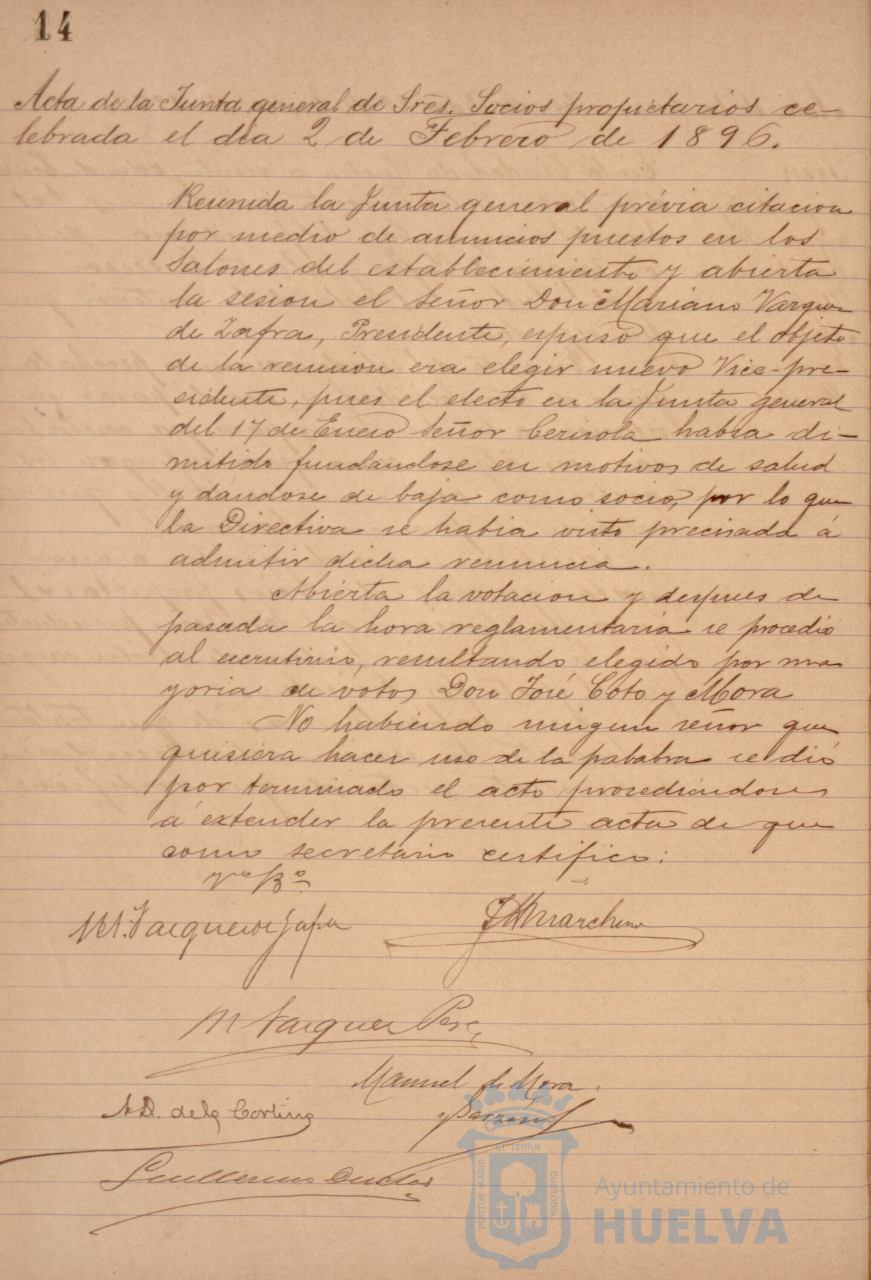 14
Acta de la Junta general de Sres. Socios propietarios ce-
lebrada el dia 2 de Febrero de 1896.
Reunida la Junta general prévia citacion
por medio de anuncios puestos en los
Salones del establecimiento y abierta
la sesion el Señor Don Mariano Vazquez
de Zafra, Presidente, espuso que el objeto
de la reunion era elegir nuevo Vice-pre-
sidente, pues el electo en la Junta general
del 17 de Enero Señor Cerisola habia di-
mitido fundandose en motivos de salud
y dandose de baja como socio, por lo que
la Directiva se habia visto precisada á
admitir dicha renuncia.
Abierta la votacion y despues de
pasada la hora reglamentaria se procedió
al escrutinio, resultando elegido por ma
yoria de votos Don José Coto y Mora
No habiendo ningun señor que
quisiera hacer uso de la pababra se dió
por terminado el acto procediendose
á extender la presente acta de que
como secretario certifico:
Vº Bº
M. Vazquez de Zafra
Marchena
M Vazquez Perez
Manuel de Mora
A.D. de la Cortina
y
Guillermo Duclos
PORTUS MARIS ET TERRÆ CUSTODIA
Ayuntamiento de
HUELVA